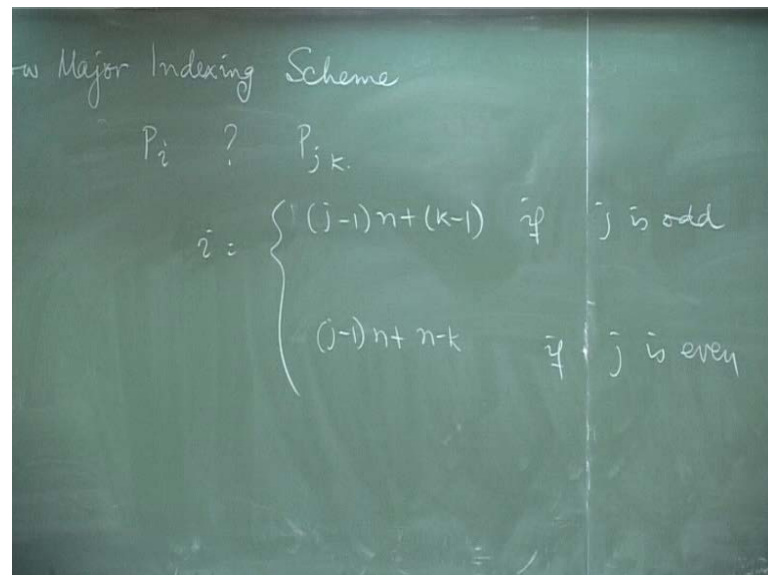 ow Major Indexing Scheme
Pi ? Pjk.
i = { (j-1)n+(k-1) if j is odd
(j-1)n+ n-k if j is even